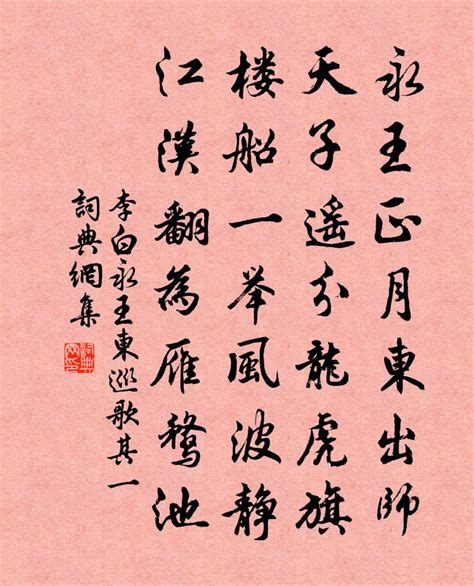 永王正月東出師
天子遥分龍虎旗
楼船一举風波静
江漢翻為雁鶩池
李白永王東巡歌其一
詞典網集